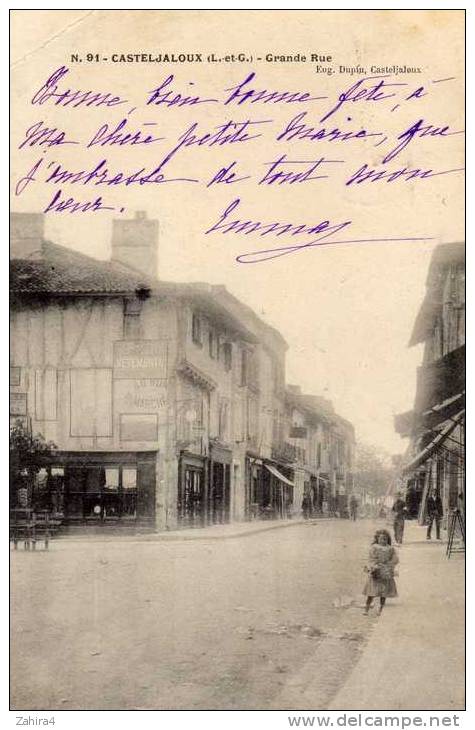 N. 91 - CASTELJALOUX (L.-et-G.) - Grande Rue
Eug. Dupin, Casteljaloux
Bonne, bien bonne fête, à
Ma chère petite Marie, que
j'embrasse de tout mon
cœur.
Emma
VETEMENTS
MARCHÉ
Zahira4
http://www.delcampe.net